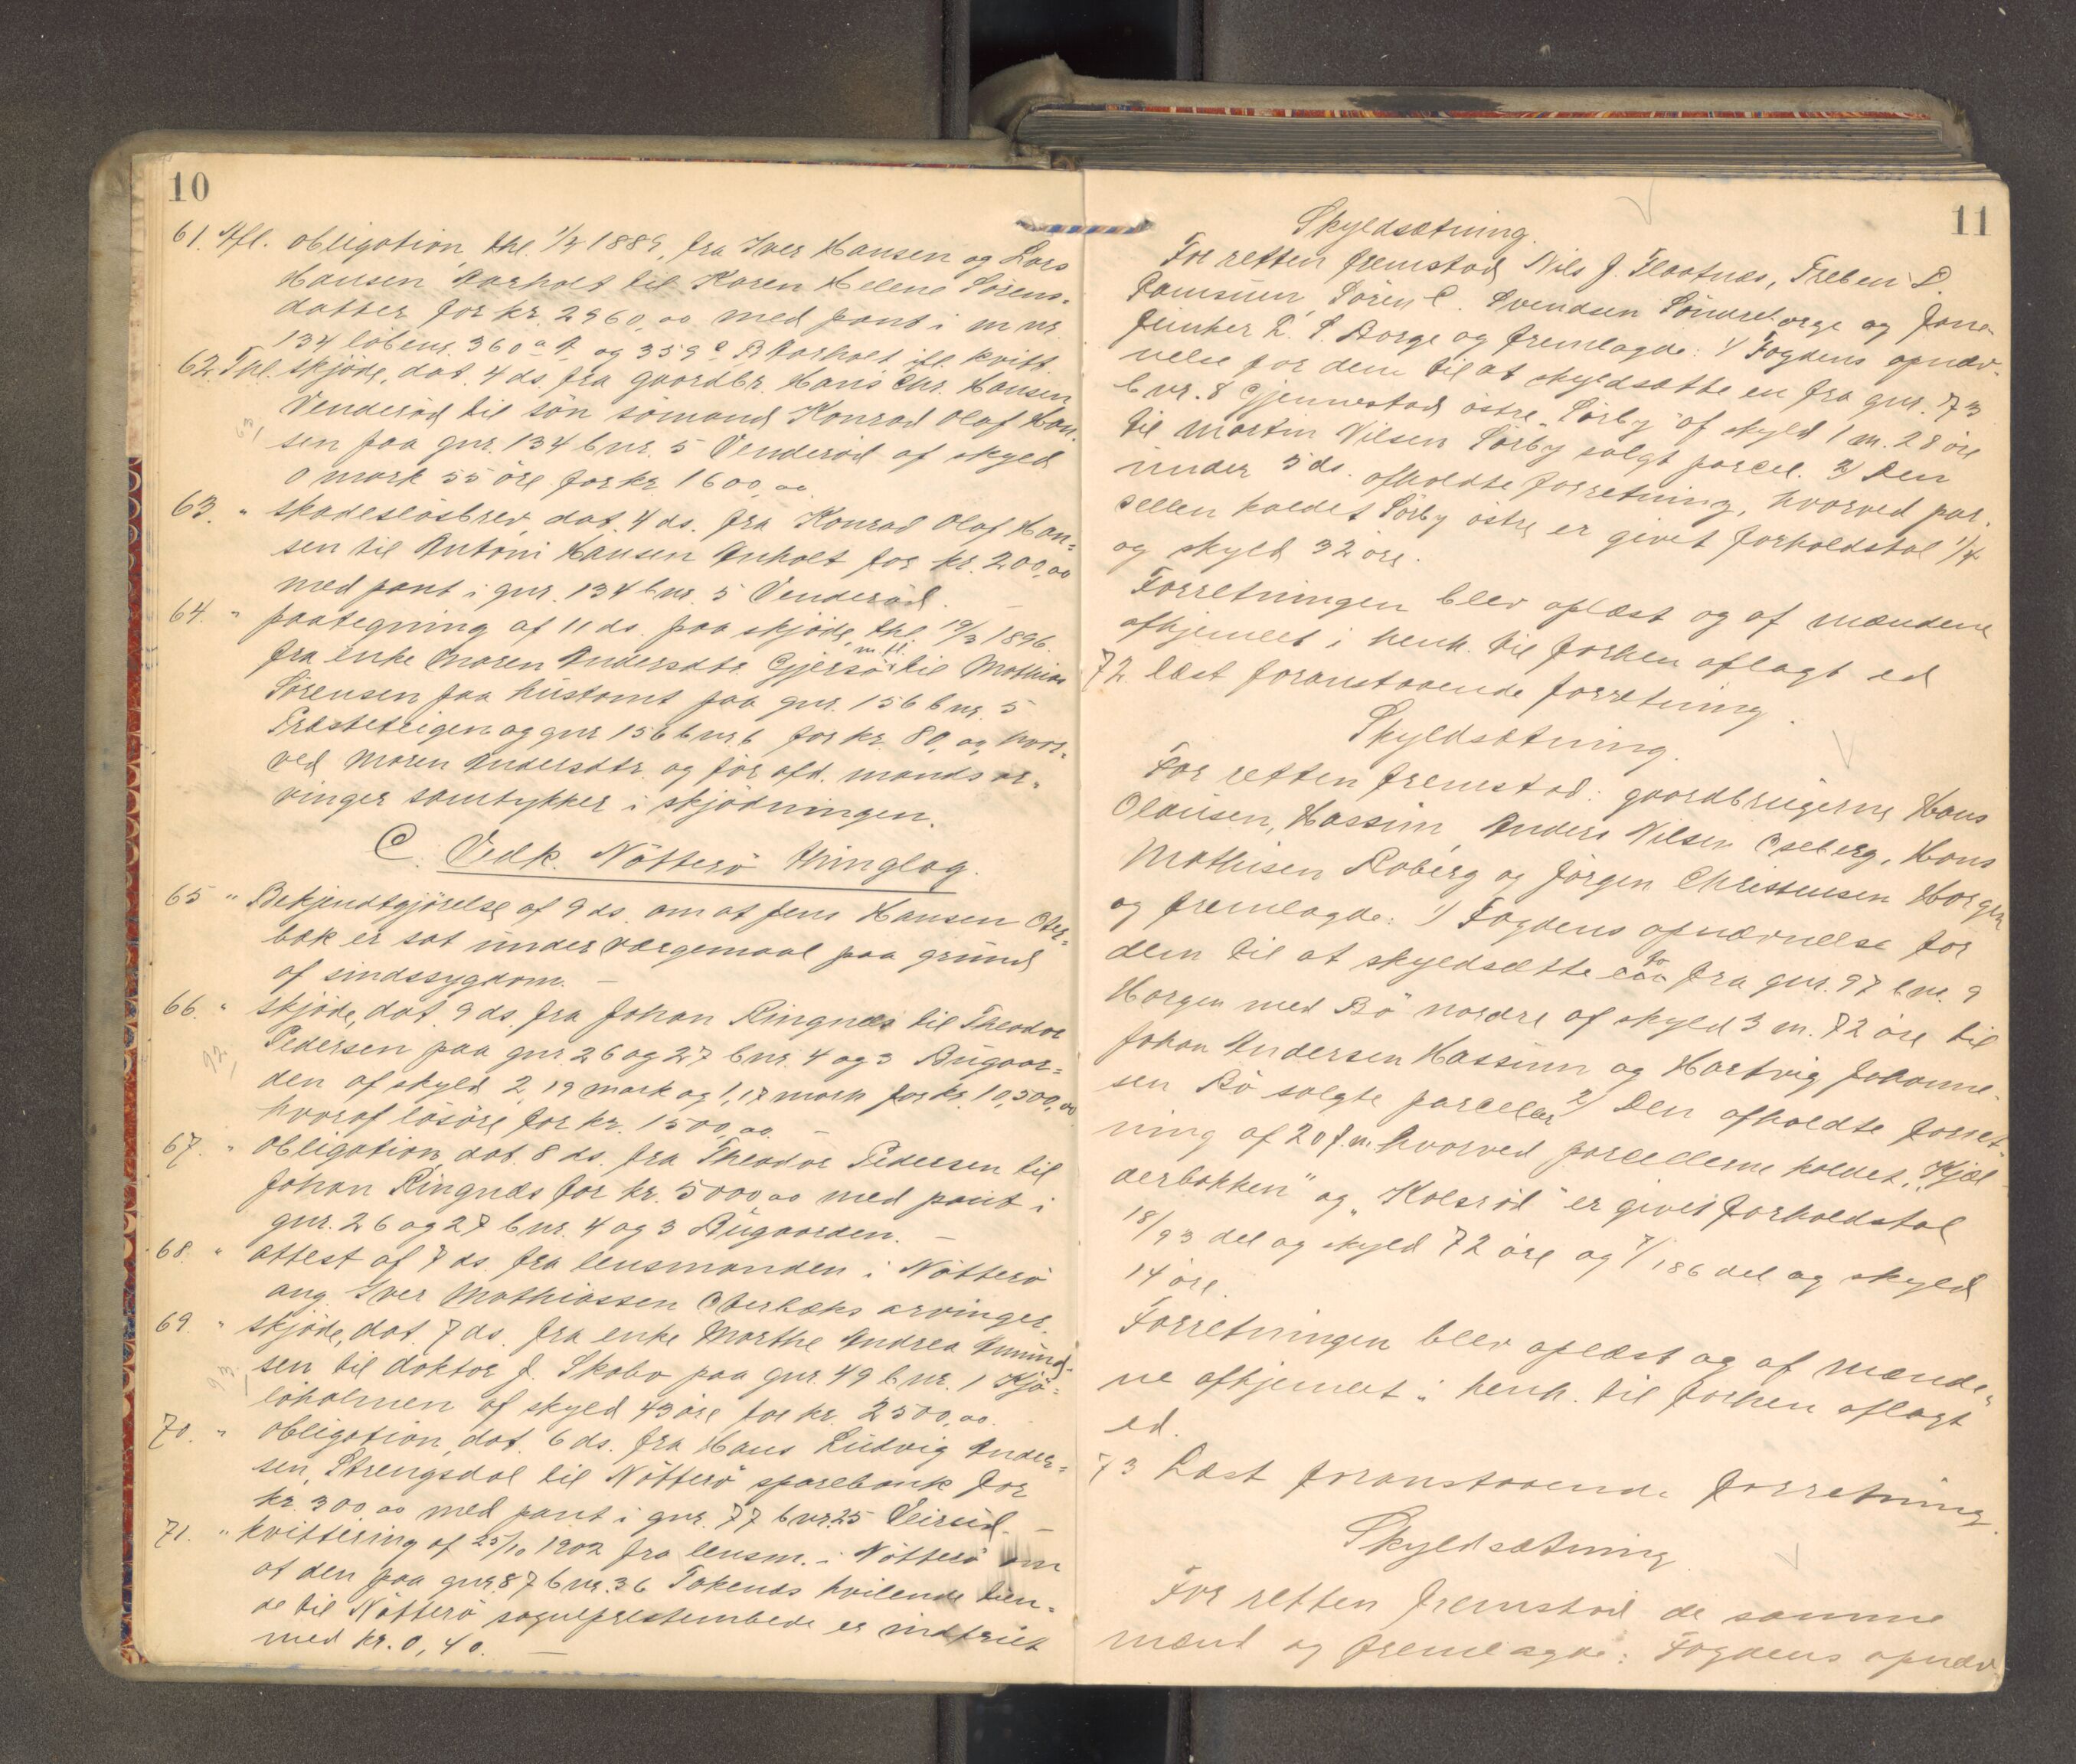 10
61. Afl. obligation, thl. 1/7 1889, fra Iver Hansen og Lars
Hansen Aarholt til Karen Helene Sørens=
datter for kr. 2960,00 med pant i m nr.
134 løbenr. 360 a A og 359 c B Aarholt ifl. kvitt.
62. Thl. skjöde, dat. 4 ds. fra gaardbr. Hans Chr. Hansen
Venderöd til sön sömand Konrad Olaf Han=
sen paa gnr. 134 bnr. 5 Venderöd af skyld
0 mark 55 öre for kr 1600,00
63. " skadeslösbrev, dat. 4 ds. fra Konrad Olaf Han=
sen til Antoni Hansen Anholt for kr. 200,00
med pant i gnr. 134 bnr. 5 Venderöd. —
64. " paategning af 11 ds. paa skjöde, thl. 19/3 1896.
fra enke Maren Andersdtr. Gjersö m. fl. til Mathias
Sörensen paa hustomt paa gnr. 156 bnr. 5
Præsteteigen og gnr 156 bnr 6 for kr 80, og hvor=
ved Maren Andersdtr. ogför afd. mands ar=
vinger samtykker i skjödningen.
C. Vedk. Nötterö thinglag.
65 " Bekjendtgjörelse af 9 ds. om at Jens Hansen Oter=
bæk er sat under værgemaal paa grund
af sindssygdom. —
66. " skjöde, dat. 9 ds. fra Johan Ringnæs til Theodor
Pedersen paa gnr. 26 og 27 bnr. 4 og 3 Bugaar=
den af skyld 2,19 mark og 1,17 mark for kr. 10,500,00
hvoraf lösöre for kr. 1500,00. —
67. " obligation dat. 8 ds. fra Theodor Pedersen til
Johan Ringnæs for kr. 5000,00 med pant i
gnr. 26 og 27 bnr. 4 og 3 Bugaarden. —
68. " attest af 7 ds. fra lensmanden i Nötterö
ang. Iver Mathiassen Oterbæks arvinger.
69. " skjöde, dat. 7 ds. fra enke Marthe Andrea Amund=
sen til doktor J. Skabo paa gnr. 49 bnr. 1 Kjö=
löholmen af skyld 43 öre for kr. 2500,00.
70. " obligation, dat. 6 ds. fra Hans Ludvig Ander=
sen, Strengsdal til Nötterö sparebank for
kr. 300,00 med pant i gnr. 77 bnr. 25 Veirud. —
71. " kvittering af 25/10 1902 fra lensm. i Nötterö om
at den paa gnr. 87 bnr. 36 Tokenæs hvilende tien=
de til Nötterö sogneprestembede er indfriet
med kr. 0,40. —
11
Skyldsætning.
For retten fremstod Nils J. Flaatnæs, Preben P.
Ramsum, Sören C. Svendsen Söndreborge og
L. P. Borge og fremlagde: 1) Fogdens opnæv=
nelse for dem til at skyldsætte en fra gnr. 73
bnr. 8 Gjennestad östre "Sörby" af skyld 1 m. 28 öre
til Martin Nilsen Sörby solgt parcel. 2) Den
under 5 ds. afholdte forretning, hvorved par=
cellen kaldet Sörby östre er givet forholdstal 1/4
og skyld 32 öre.
Forretningen blev oplæst og af mændene
afhjemlet i henh. til forhen aflagt ed
72. læst foranstaaende forretning.
Skyldsætning.
For retten fremstod: gaardbrugerne Hans
Olausen, Hassum, Anders Nilsen Oseberg, Hans
Mathisen Roberg og Jörgen Christensen Horgen
og fremlagde: 1) Fogdens opnævnelse for
dem til at skyldsætte to fra gnr. 97 bnr. 9
Horgen med Bö nordre af skyld 3 m. 72 öre til
Johan Andersen Hassum og Hartvig Johanne=
sen Bö solgte parceller 2) Den afholdte forret=
ning af 20 f. m. hvorved parcellerne kaldet "Kjæl=
derbakken" og "Kolsröd" er givet forholdstal
18/93 del og skyld 72 öre og 7/186 del og skyld
14 öre.
Forretningen blev oplæst og af mænde=
ne afhjemlet i henh. til forhen aflagt
ed.
73 Læst foranstaaende forretning.
Skyldsætning
For retten fremstod de samme
mænd og fremlagde: Fogdens opnæv